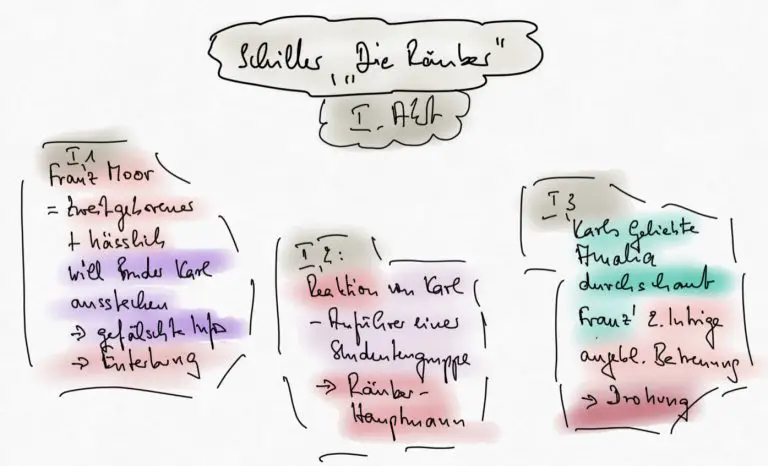 Schiller, "Die Räuber"
I. Akt
I 1
Franz Moor
= Zweitgeborener
+ hässlich
will Bruder Karl
ausstechen
→ gefälschte Info
→ Enterbung
I 2:
Reaktion von Karl
- Anführer einer
Studentengruppe
→ Räuber-
Hauptmann
I 3
Karls Geliebte
Amalia
durchschaut
Franz' 2. Intrige
angebl. Betreuung
→ Drohung